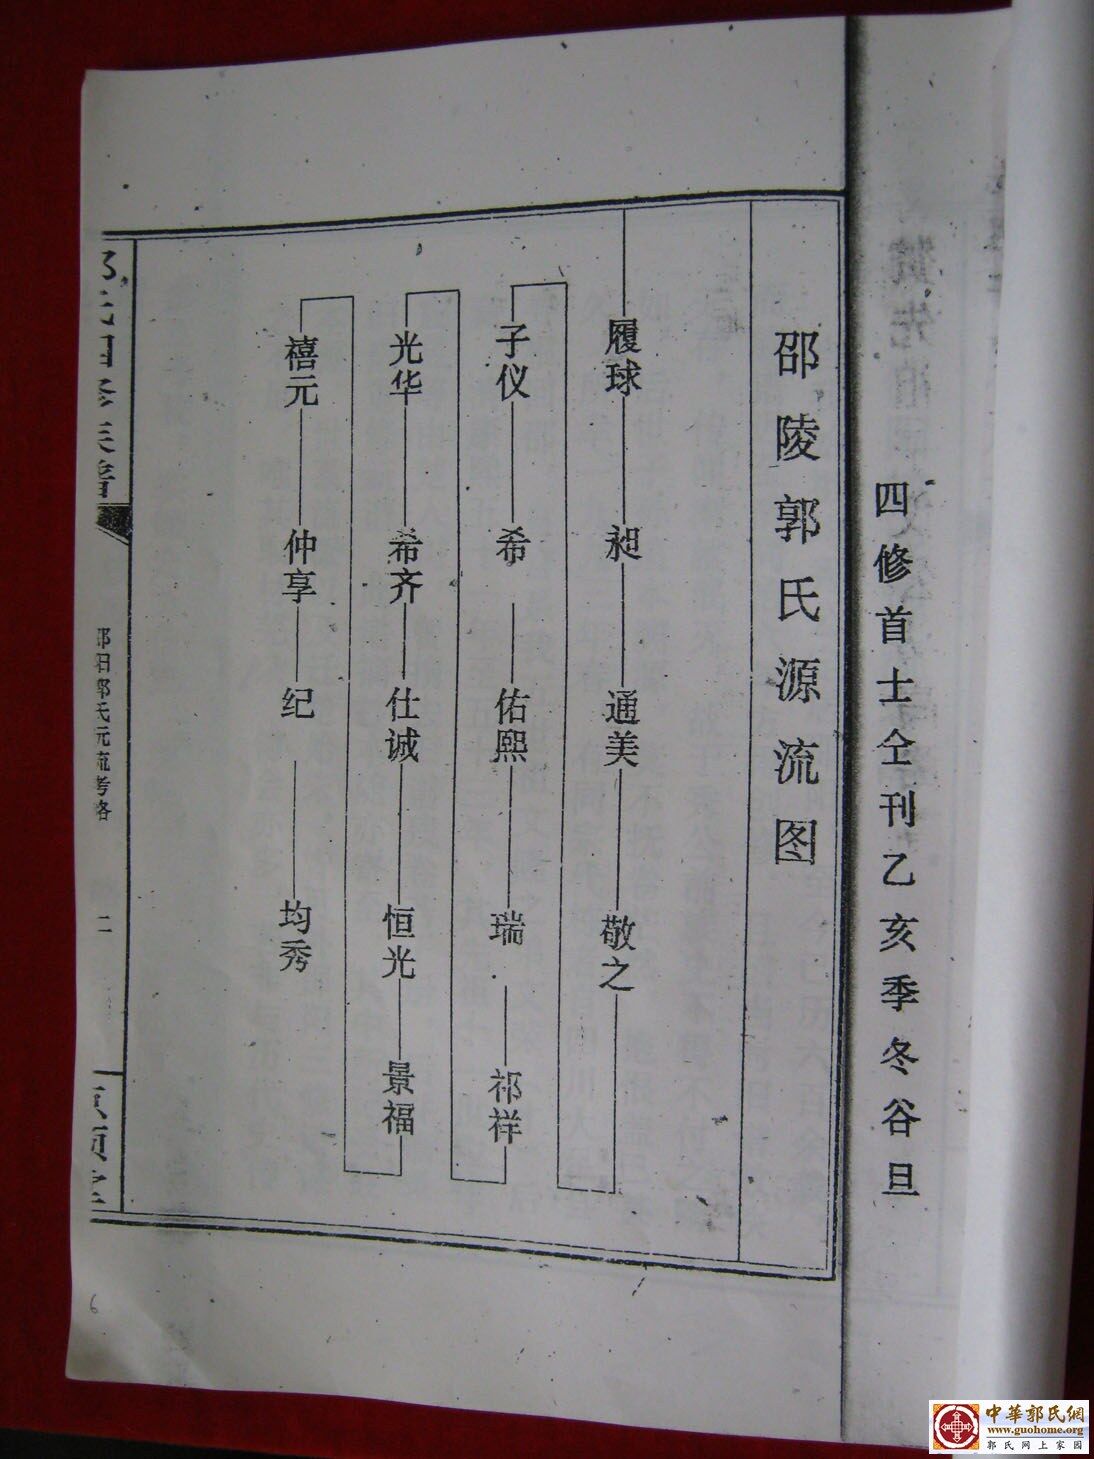 四修首士仝刊乙亥季冬谷旦
邵陵郭氏源流图
履球 昶 通美 敬之
子仪 希 佑熙 瑞 祁祥
光华 希齐 仕诚 恒光 景福
禧元 仲享 纪 均秀
氏四修族谱
邵阳郭氏元流考略
二
6
中華郭氏網
www.guohome.org
郭氏网上家园